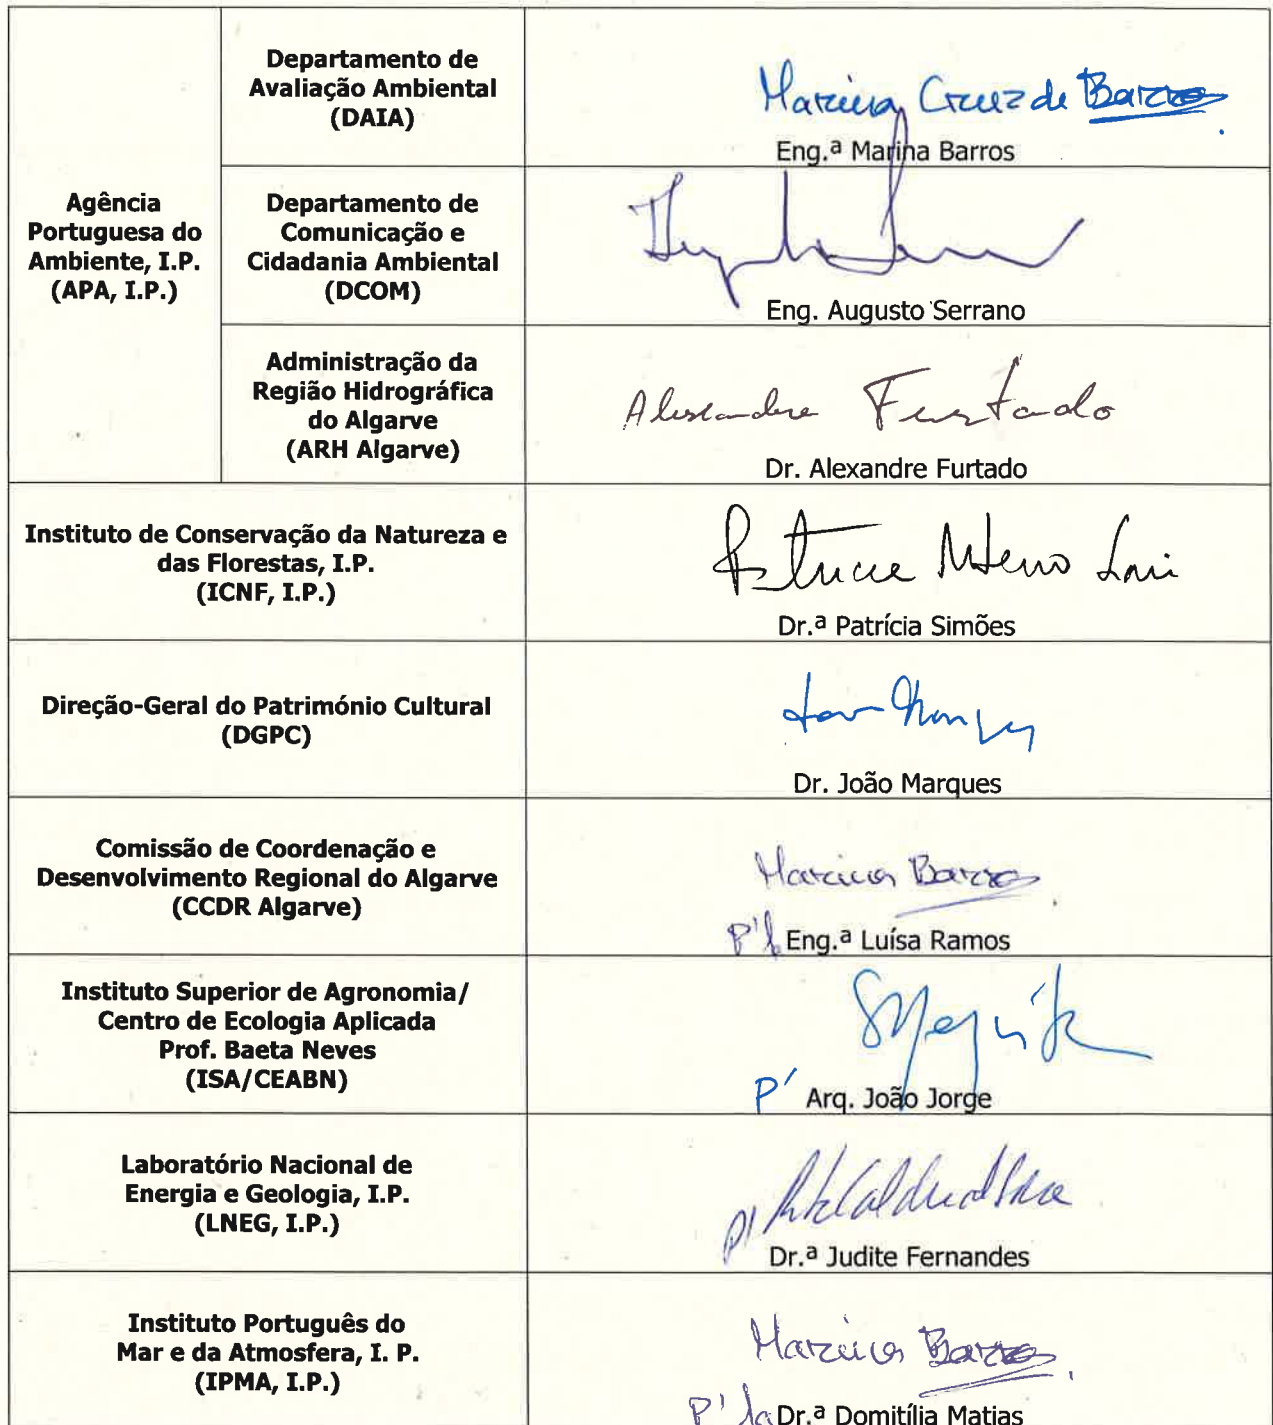 Agência
Portuguesa do
Ambiente, I.P.
(APA, I.P.)
Departamento de
Avaliação Ambiental
(DAIA)
Marina Cruz de Barros
Eng.ª Marina Barros
Departamento de
Comunicação e
Cidadania Ambiental
(DCOM)
Eng. Augusto Serrano
Administração da
Região Hidrográfica
do Algarve
(ARH Algarve)
Alexandre Furtado
Dr. Alexandre Furtado
Instituto de Conservação da Natureza e
das Florestas, I.P.
(ICNF, I.P.)
Dr.ª Patrícia Simões
Direção-Geral do Património Cultural
(DGPC)
Dr. João Marques
Comissão de Coordenação e
Desenvolvimento Regional do Algarve
(CCDR Algarve)
Marina Barros
Eng.ª Luísa Ramos
Instituto Superior de Agronomia/
Centro de Ecologia Aplicada
Prof. Baeta Neves
(ISA/CEABN)
P' Arq. João Jorge
Laboratório Nacional de
Energia e Geologia, I.P.
(LNEG, I.P.)
P'
Dr.ª Judite Fernandes
Instituto Português do
Mar e da Atmosfera, I. P.
(IPMA, I.P.)
Marina Barros
P' la Dr.ª Domitília Matias